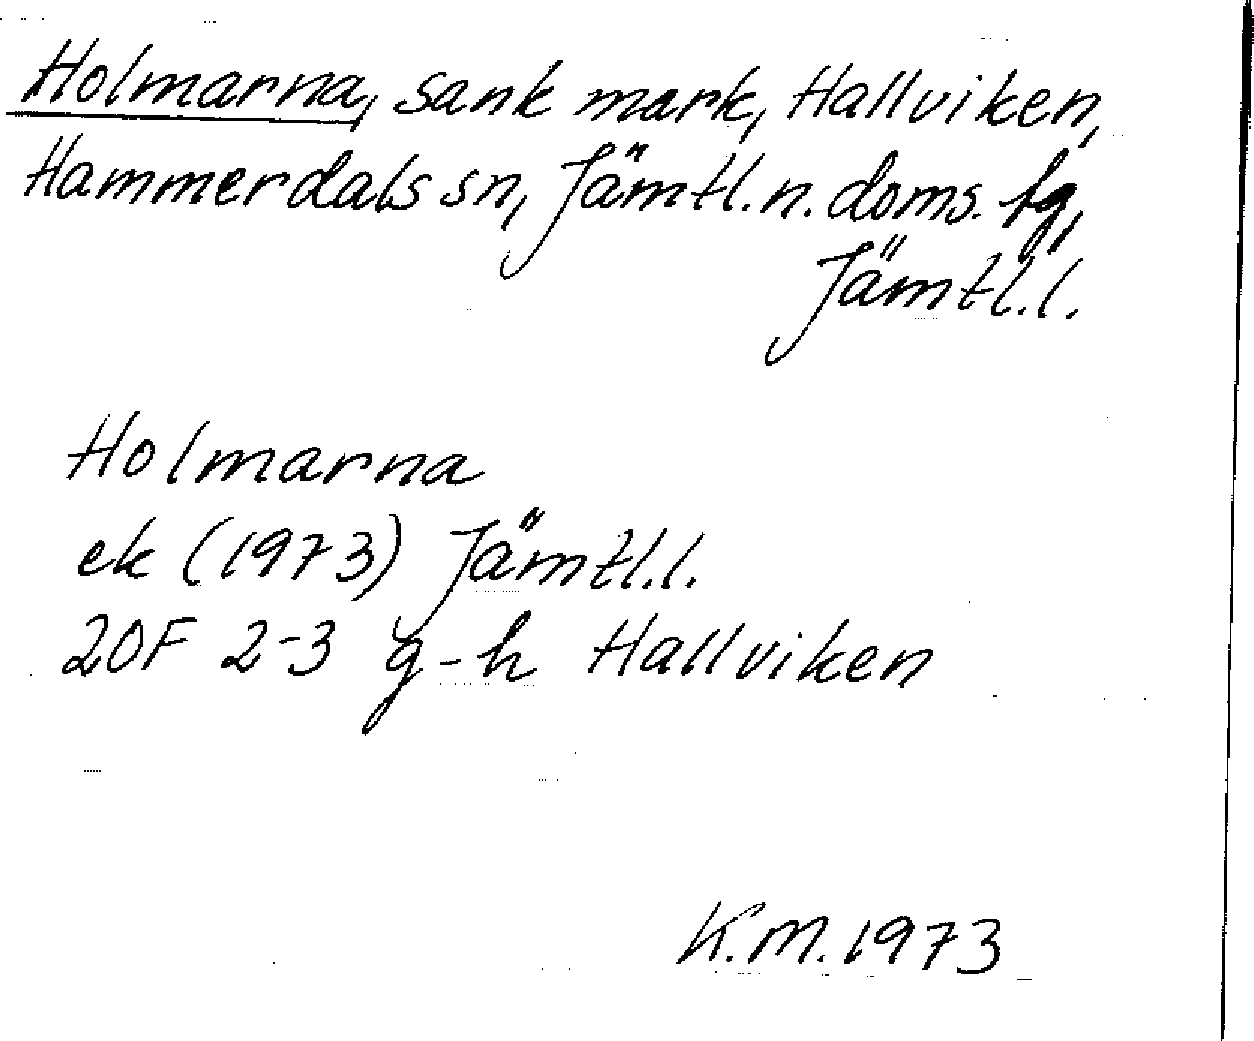 Holmarna, sank mark, Hallviken,
Hammerdals sn, Jämtl. n. doms. tg,
Jämtl. l.
Holmarna
ek (1973) Jämtl. l.
20F 2-3 g-h Hallviken
K.M. 1973